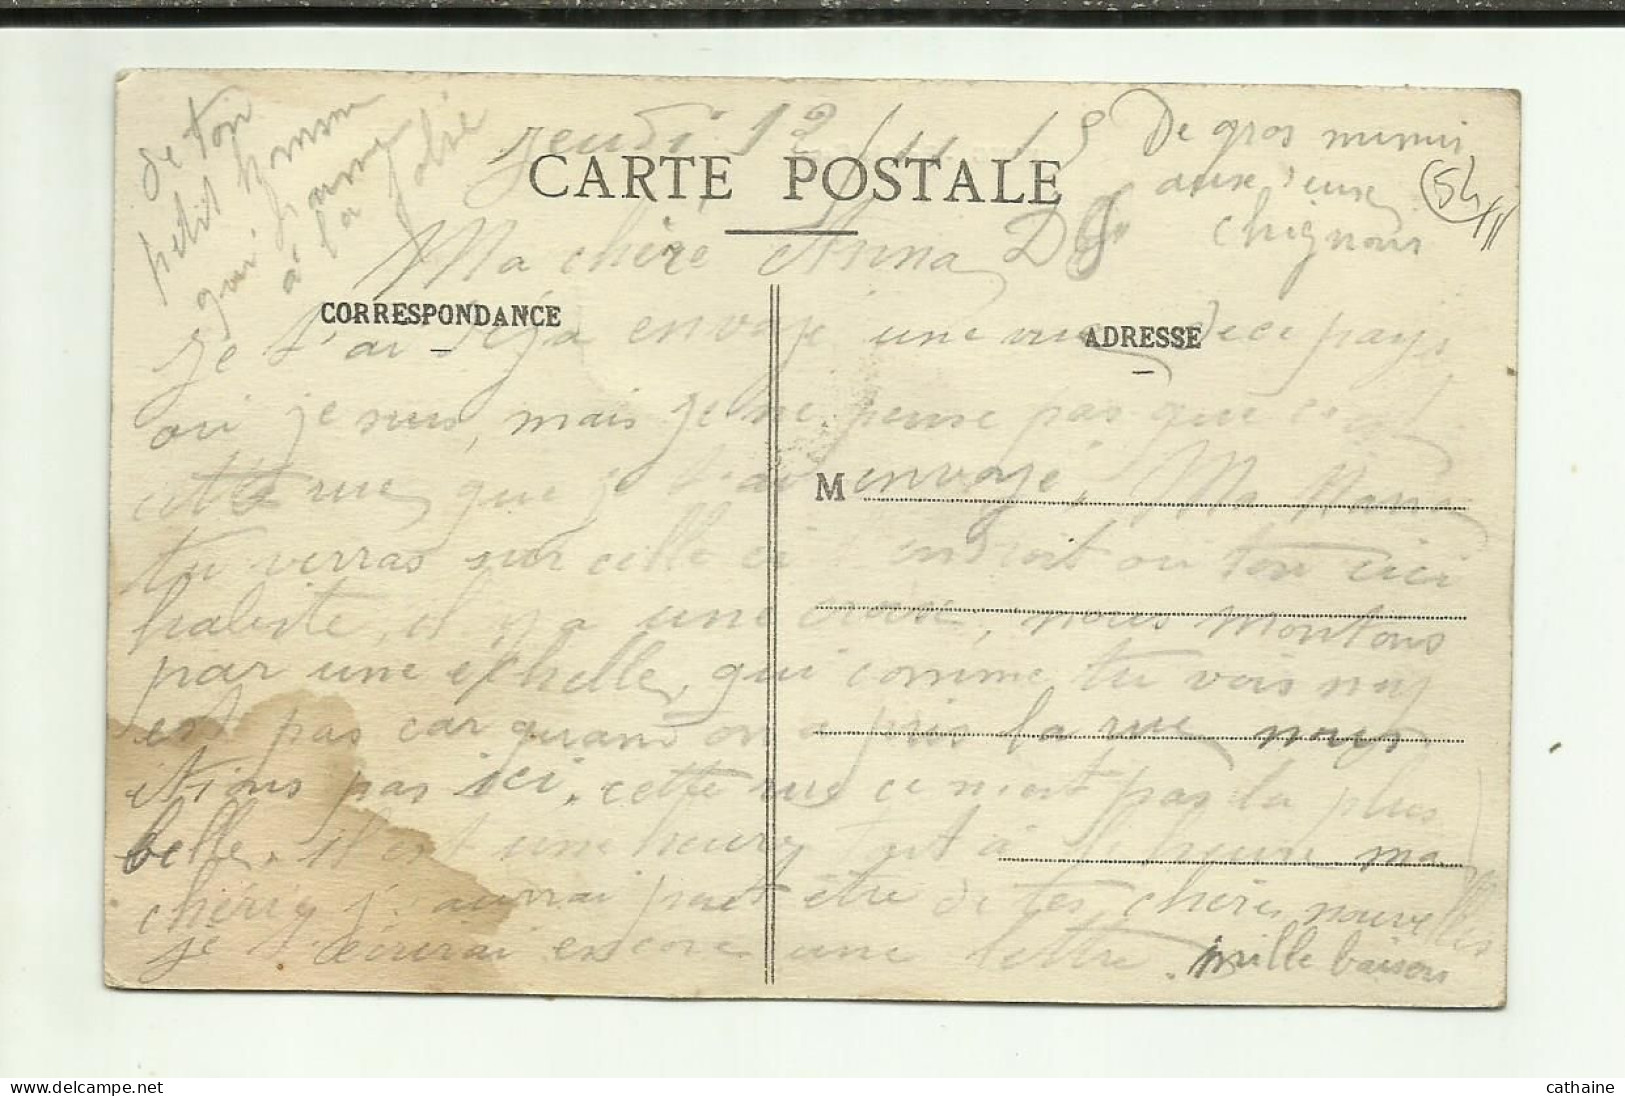 Jeudi 12
CARTE POSTALE
De gros mimis
aux
chignons
54
de ton
petit homme
qui t'aime
à la folie
Ma chère Anna
CORRESPONDANCE
ADRESSE
je t'ai déja envoyé une vue de ce pays
ou je suis, mais je ne pense pas que c'est
cette vue que je t'ai envoyé, Ma
M
tu verras sur celle ci l'endroit ou ton cici
habite, il y a une croix, nous montons
par une échelle, qui comme tu vois n'y
est pas car quand on a pris la vue nous
étions pas ici, cette vue ce n'est pas la plus
belle. il est une heure, tot à l'heure ma
chérie j'aurrai peut être de tes chères nouvelles
je t'écrirai encore une lettre. mille baisers
cathaine